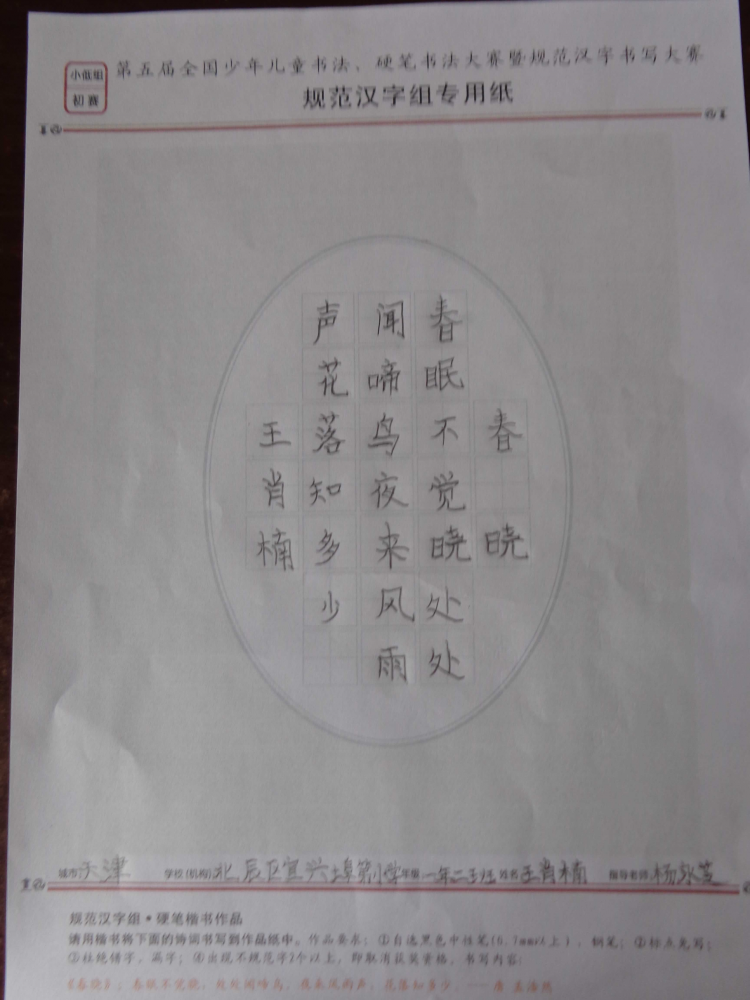 小低组
初赛
第五届全国少年儿童书法、硬笔书法大赛暨规范汉字书写大赛
规范汉字组专用纸
春晓
春眠不觉晓处处
闻啼鸟夜来风雨
声花落知多少
王肖楠
城市 天津 学校(机构) 北辰区宜兴埠第小学 年级 一年二班 姓名 王肖楠 指导老师
规范汉字组·硬笔楷书作品
请用楷书将下面的诗词书写到作品纸中。作品要求:①自选黑色中性笔(0.7mm以上)、钢笔;②标点免写;
③杜绝错字,漏字;④出现不规范字2个以上,即取消获奖资格,书写内容:
《春晓》:春眠不觉晓,处处闻啼鸟。夜来风雨声,花落知多少。——唐 孟浩然